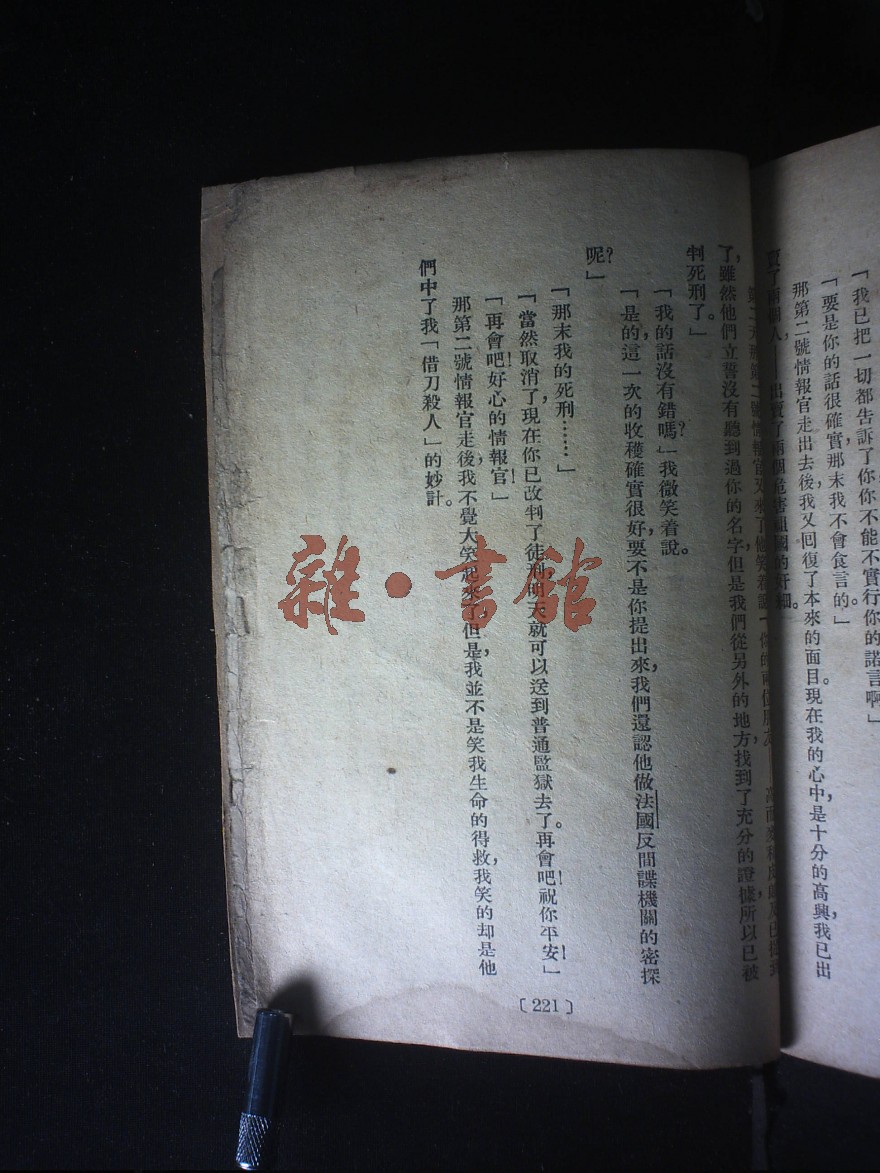 「我已把一切都告訴了你，你不能不實行你的諾言啊」
「要是你的話很確實，那末我不會食言的。」
那第二號情報官走出去後，我又回復了本來的面目。現在我的心中，是十分的高興，我已出
賣了兩個人，出賣了兩個危害祖國的奸細。
第二天那第二號情報官又來了，他笑着說：「你的兩位朋友
了，雖然他們立誓沒有聽到過你的名字，但是我們從另外的地方，找到了充分的證據，所以已被
判死刑了。」
「我的話沒有錯嗎？」我微笑着說。
「是的，這一次的收穫，確實很好，要不是你提出來，我們還認他做法國反間諜機關的密探
呢？」
「那末，我的死刑……」
「當然取消了，現在你已改判了徒刑，明天就可以送到普通監獄去了。再會吧！祝你平安！」
「再會吧！好心的情報官！」
那第二號情報官走後，我不覺大笑起來了，但是，我並不是笑我生命的得救，我笑的却是他
們中了我「借刀殺人」的妙計。
〔221〕
雜·書館